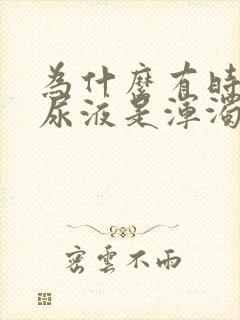 為什麼有時
尿液是渾濁
密雲不雨